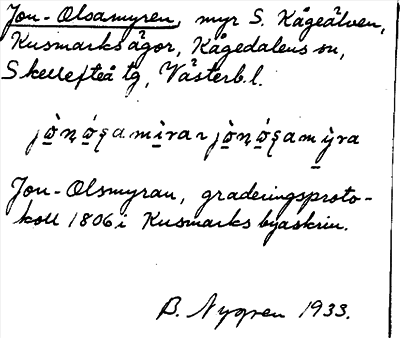 Jon-Olsamyren, myr S. Kågeälven,
Kusmarks ägor, Kågedalens sn,
Skellefteå tg, Västerb. l.
Jon-Olsmyran, graderingsproto-
koll 1806 i Kusmarks byaskrin.
B. Nygren 1933.